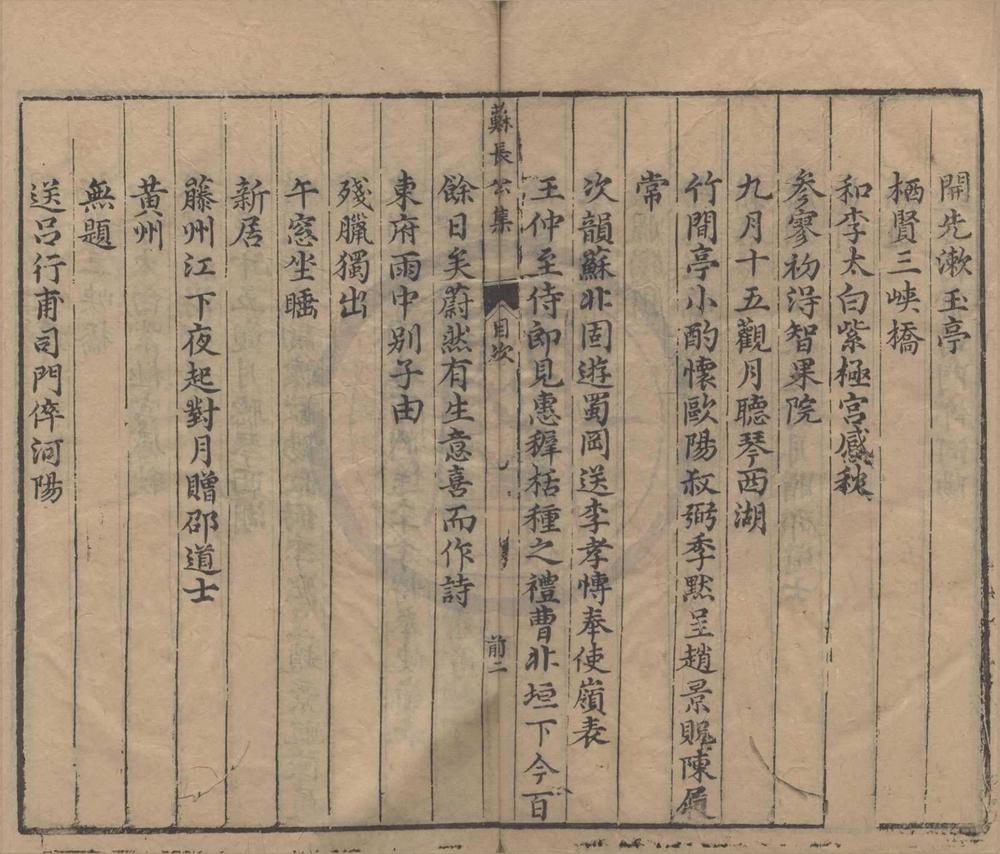 開先漱玉亭
栖賢三峽橋
和李太白紫極宮感秋
參寥初淂智果院
九月十五觀月聽琴西湖
竹間亭小酌懷歐陽叔弼季默呈趙景貺陳履
常
次韻蘇北固遊蜀岡送李孝慱奉使嶺表
王仲至侍郎見惠穉栝種之禮曹北垣下今百
蘇長公集
目次
前二
餘日矣蔚然有生意喜而作詩
東府雨中别子由
殘臘獨出
午窓坐睡
新居
藤州江下夜起對月贈邵道士
黃州
無題
送呂行甫司門倅河陽